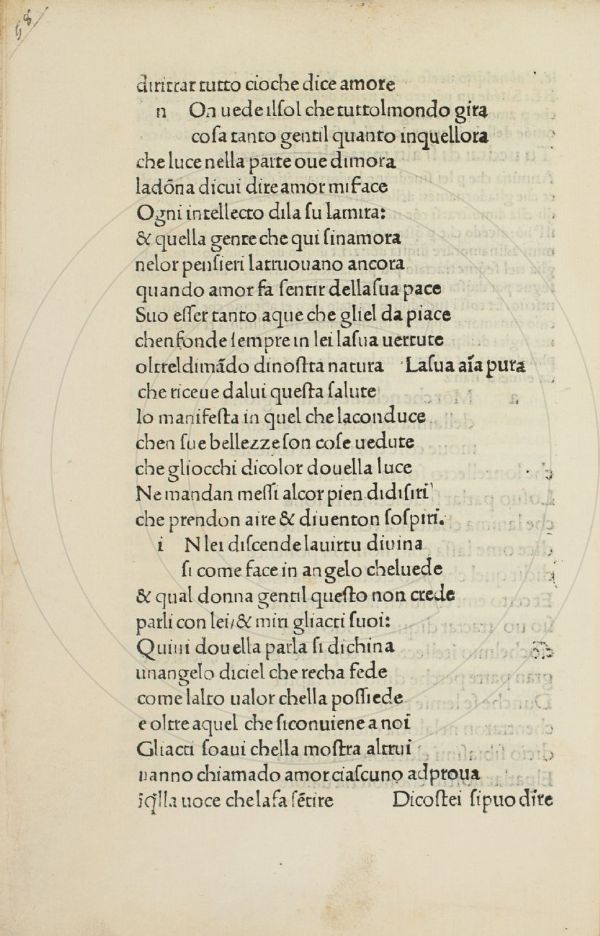 58
diritrar tutto cioche dice amore
n On uede ilsol che tuttolmondo gira
cosa tanto gentil quanto inquellora
che luce nella parte oue dimora
ladōna dicui dire amor miface
Ogni intellecto dila su lamira:
& quella gente che qui sinamora
nelor pensieri latruouano ancora
quando amor fa sentir dellasua pace
Suo esser tanto aque che gliel da piace
chenfonde sempre in lei lasua uertute
oltreldimādo dinostra natura Lasua aīa pura
che riceue dalui questa salute
lo manifesta in quel che laconduce
chen sue bellezze son cose uedute
che gliocchi dicolor douella luce
Ne mandan messi alcor pien didisiri
che prendon aire & diuenton sospiri.
i N lei discende lauirtu diuina
si come face in angelo cheluede
& qual donna gentil questo non crede
parli con lei/& miri gliacti suoi:
Quiui douella parla si dichina
unangelo diciel che recha fede
come lalto ualor chella possiede
e oltre aquel che siconuiene a noi
Gliacti soaui chella mostra altrui
uanno chiamado amor ciascuno adproua
īq̄lla uoce chelafa sētire Dicostei sipuo dire